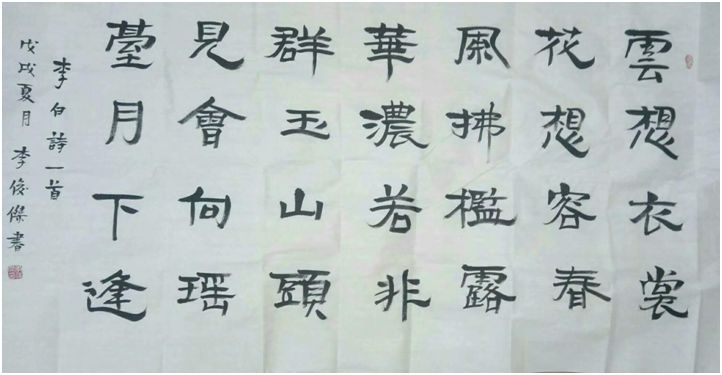 雲想衣裳
花想容春
風拂檻露
華濃若非
群玉山頭
見會向瑶
臺月下逢
李白詩一首
戊戌夏月李俊傑書